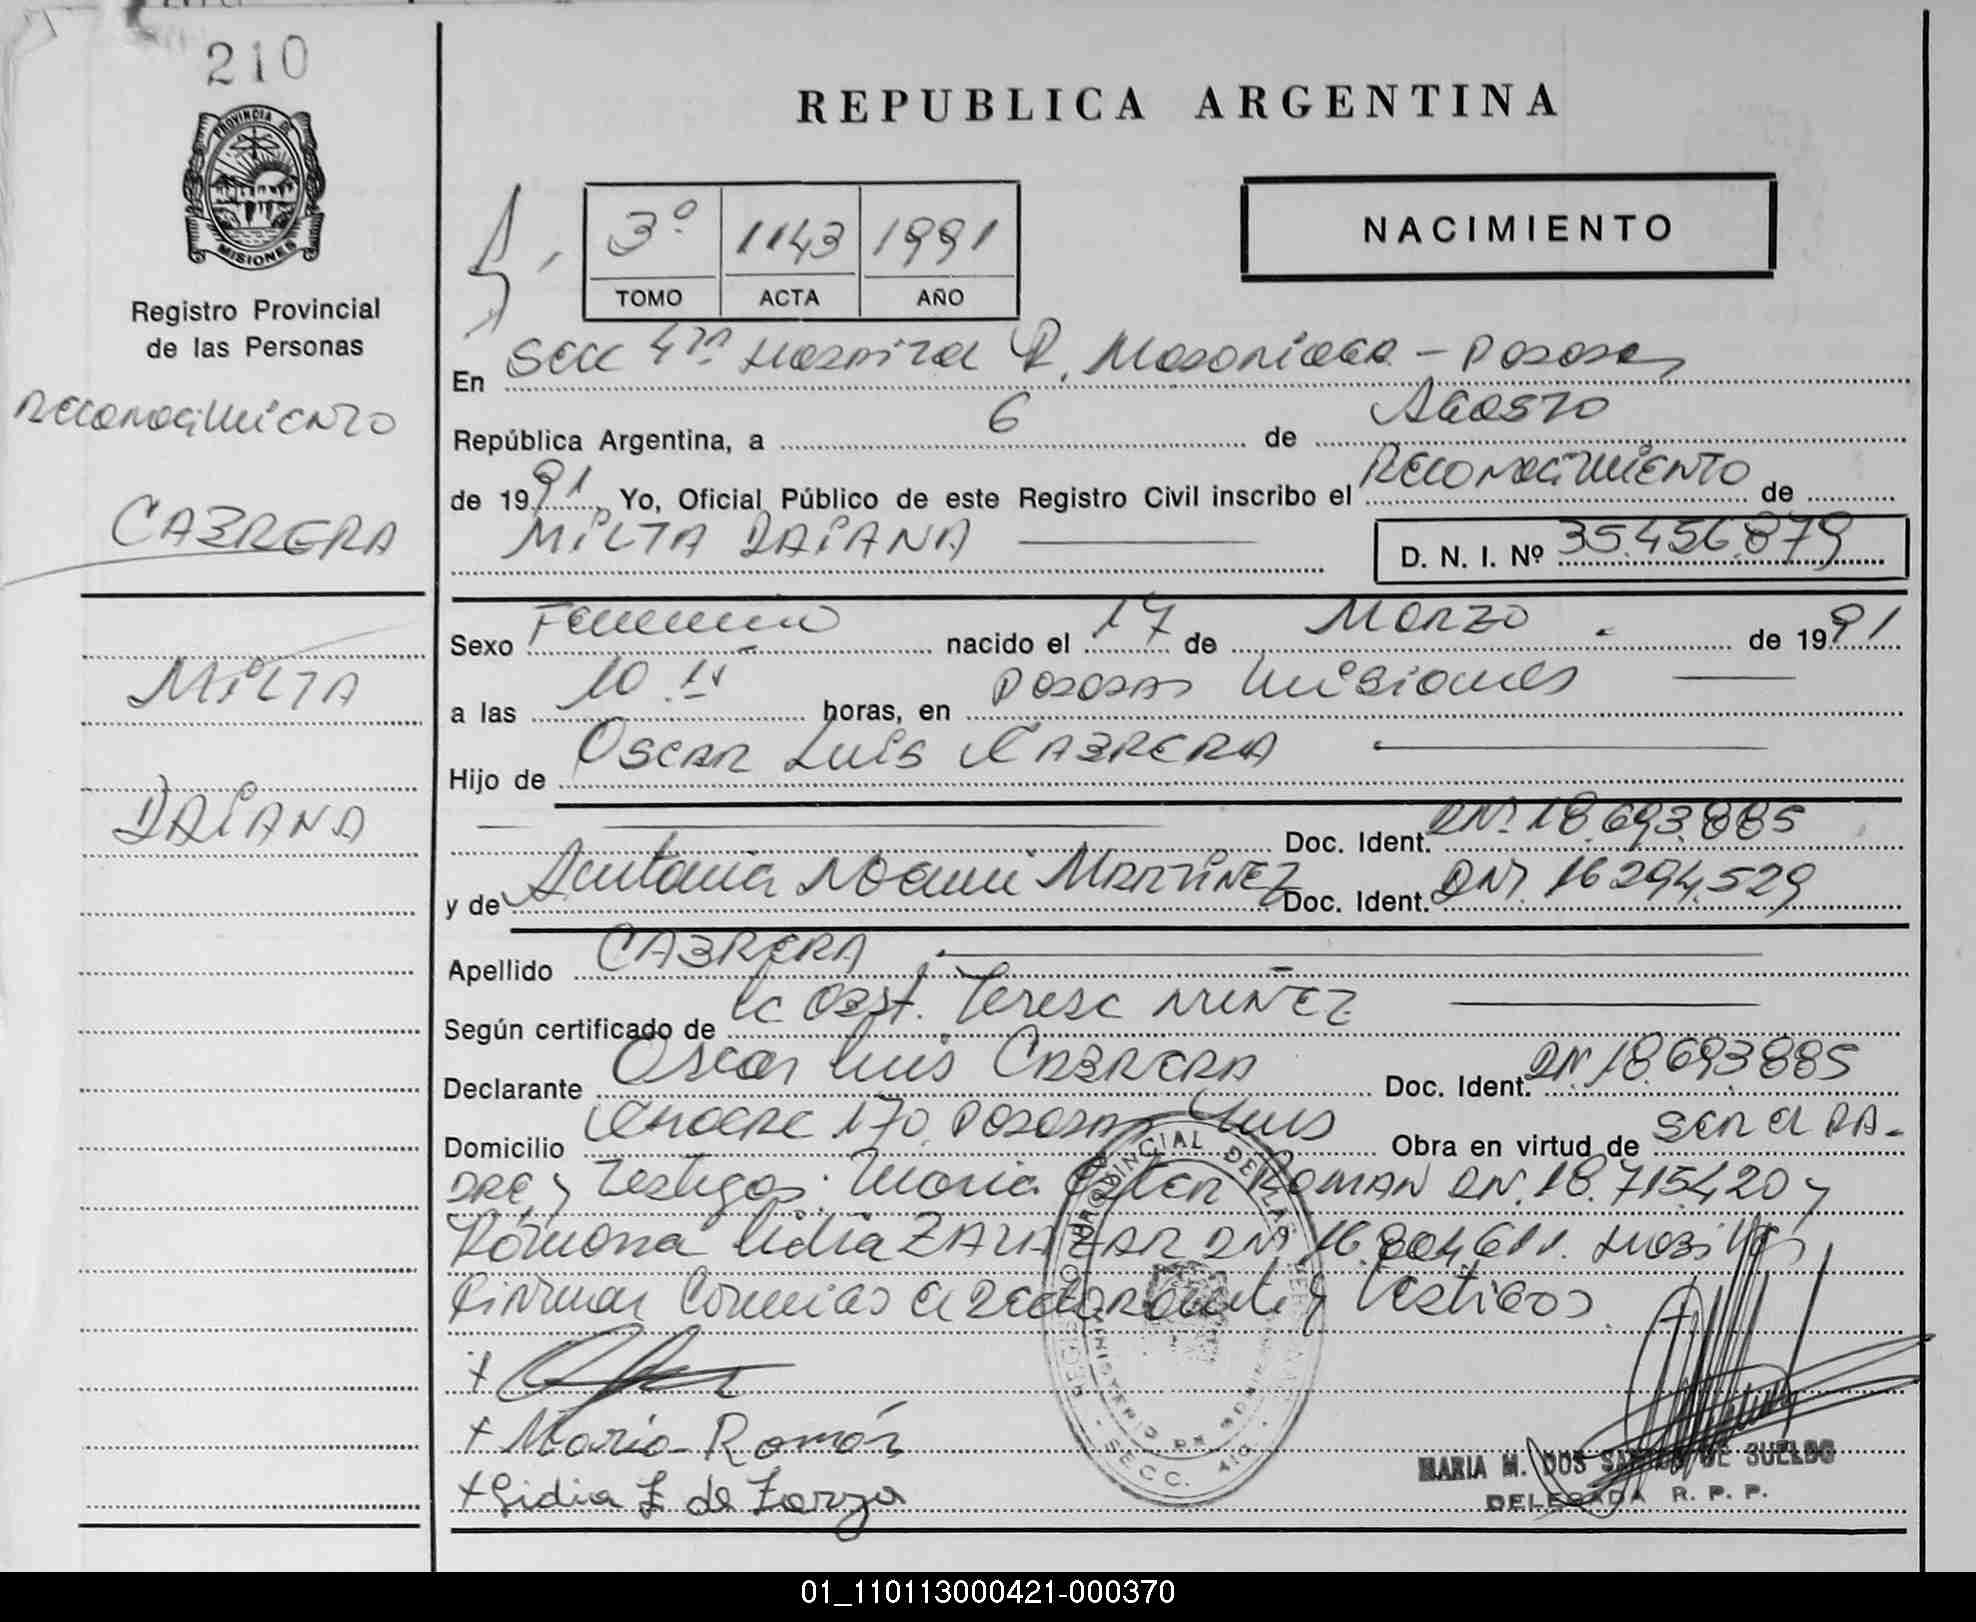 210
PROVINCIA DE
MISIONES
Registro Provincial
de las Personas
RECONOCIMIENTO
CABRERA
MILTA
DAIANA
REPUBLICA ARGENTINA
3º 1143 1991
TOMO ACTA AÑO
NACIMIENTO
En Secc 4ta Hospital R. Madariaga - Posadas
República Argentina, a 6 de Agosto
de 1991, Yo, Oficial Público de este Registro Civil inscribo el RECONOCIMIENTO de
MILTA DAIANA D. N. I. Nº 35.456.879
Sexo Femenino nacido el 17 de Marzo de 1991
a las 10 horas, en Posadas Misiones
Hijo de Oscar Luis CABRERA
Doc. Ident. DNI. 18.693.885
y de Antonia Noemi MARTINEZ Doc. Ident. DNI. 16.294.529
Apellido CABRERA
Según certificado de la Obst. Teresa NUÑEZ
Declarante Oscar Luis CABRERA Doc. Ident. DNI 18.693.885
Domicilio 170 Posadas Obra en virtud de ser el PA-
DRE y Testigos: Maria Ester ROMAN DNI. 18.715.420 y
Ramona Lidia DNI 16.804.611. Habiles
Firman Conmigo el Declarante y Testigos.
+
+ Maria Román
+ Lidia Z de Zarza
REGISTRO PROVINCIAL DE LAS PERSONAS
MINISTERIO DE GOBIERNO
SECC. 4ta.
MARIA M. DOS SANTOS DE SUELDO
DELEGADA R. P. P.
01_110113000421-000370